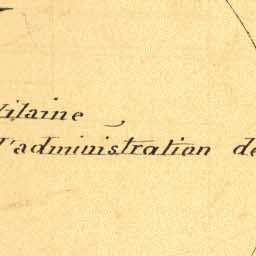 Vilaine
l'administration de